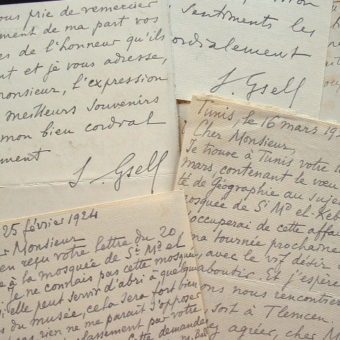 ous prie de remercier
ment de ma part vos
es de l'honneur qu'ils
nt et je vous adresse,
onsieur, l'expression
meilleurs souvenirs
mon bien cordial
ment
S. Gsell
Sentiments les
cordialement
S. Gsell
Tunis, le 16 mars 19
Cher Monsieur
Je trouve à Tunis votre
mars contenant le vœu
té de Géographie au sujet
mosquée de Si Md el-Keb
occuperai de cette affai
ma tournée prochaine
avec le vif désir
aboutir. Et j'espère
ons nous rencontrer
soit à Tlemcen.
ez agréer, cher M
25 février 1924
er Monsieur
en reçu votre lettre du 20
à la mosquée de Si Md el
Je ne connais pas cette mosquée,
elle peut servir d'abri à quelque
du musée, cela sera fort bien
as rien ne me paraît s'opposer
classement par votre
cette demande